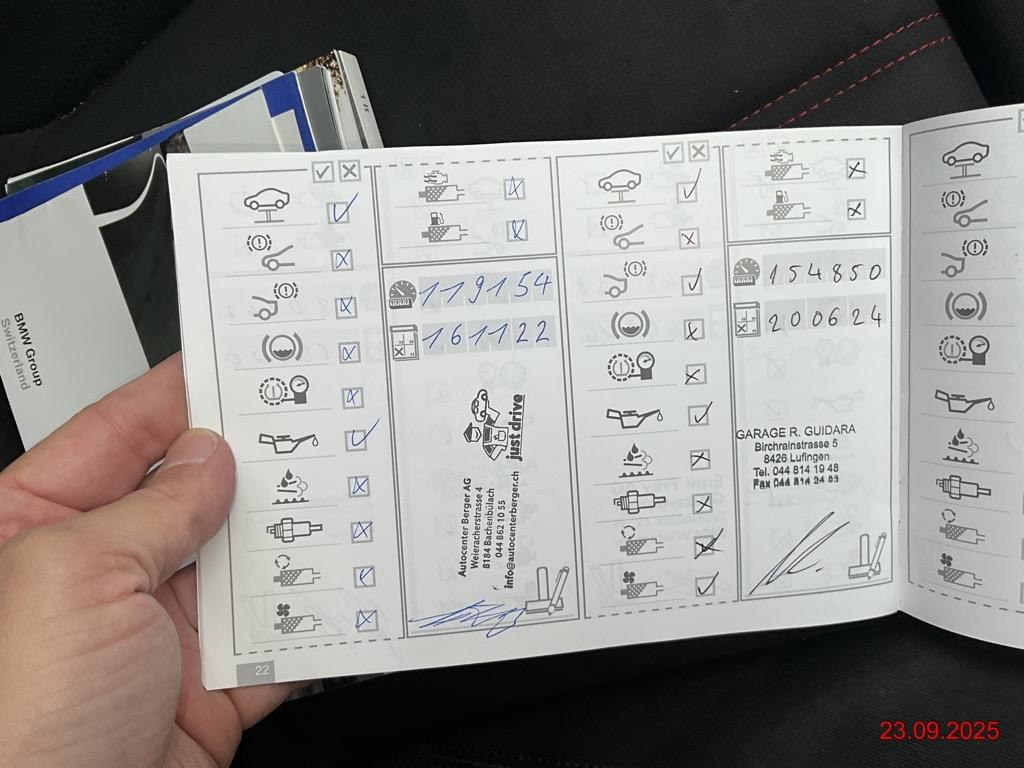 BMW Group
Switzerland
119154
161122
just drive
Autocenter Berger AG
Weieracherstrasse 4
8184 Bachenbülach
044 862 10 55
info@autocenterberger.ch
22
154850
200624
GARAGE R. GUIDARA
Birchrainstrasse 5
8426 Lufingen
Tel. 044 814 19 48
Fax 044 814 24 83
23.09.2025